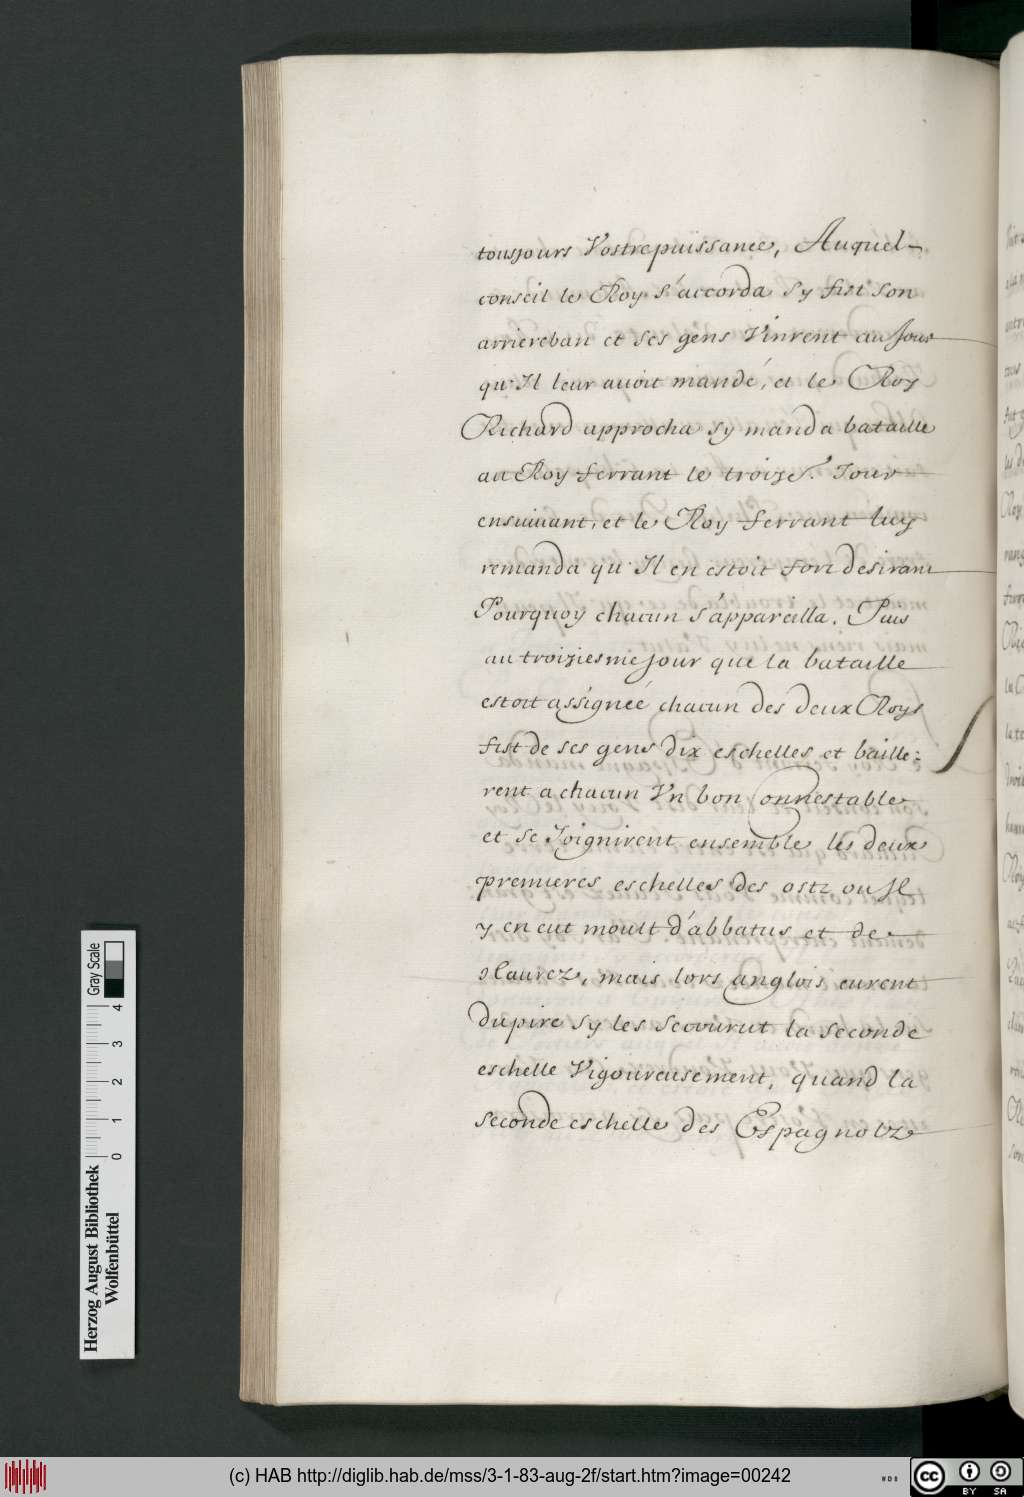 tousjours Vostre puissance, Auquel
conseil le Roy s'accorda sy fist son
arriereban et ses gens Vinrent au Jour
qu'Il leur auoit mandé, et le Roy
Richard approcha sy manda bataille
au Roy ferrant le troize.e Jour
ensuiuant, et le Roy ferrant luy
remanda qu'Il en estoit fort desirant
Pourquoy chacun s'appareilla. Puis
au troiziesme Jour que la bataille
estoit assignée chacun des deux Roys
fist de ses gens dix eschelles et baille:
rent a chacun Vn bon Connestable
et se Joignirent ensemble les deux
premieres eschelles des ostz ou Jl
y en eut moult d'abbatus et de
Naurez, mais lors anglois eurent
du pire sy les secourut la seconde
eschelle Vigoureusement, quand la
seconde eschelle des Espagnolz
Herzog August Bibliothek
Wolfenbüttel
0 1 2 3 4
Gray Scale
(c) HAB http://diglib.hab.de/mss/3-1-83-aug-2f/start.htm?image=00242
WDB
cc BY SA